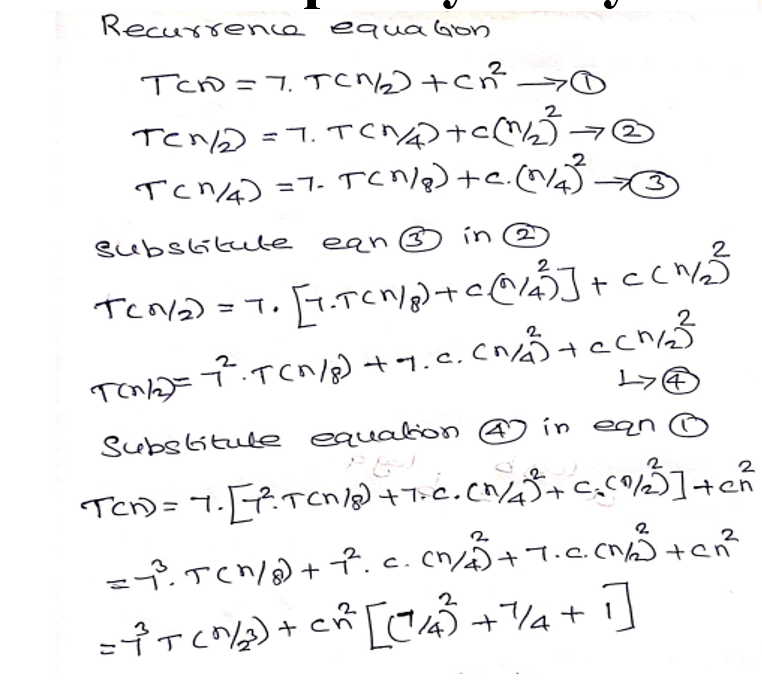 Recurrence equation
T(n) = 7. T(n/2) + cn² → ①
T(n/2) = 7. T(n/4) + c(n/2)² → ②
T(n/4) = 7. T(n/8) + c.(n/4)² → ③
Substitute eqn ③ in ②
T(n/2) = 7. [7.T(n/8) + c.(n/4)²] + c(n/2)²
T(n/2) = 7². T(n/8) + 7.c.(n/4)² + c(n/2)²
↳ ④
Substitute equation ④ in eqn ①
T(n) = 7.[7².T(n/8) + 7.c.(n/4)² + c.(n/2)²] + cn²
= 7³. T(n/8) + 7². c. (n/4)² + 7.c.(n/2)² + cn²
= 7³ T(n/2³) + cn² [(7/4)² + 7/4 + 1]